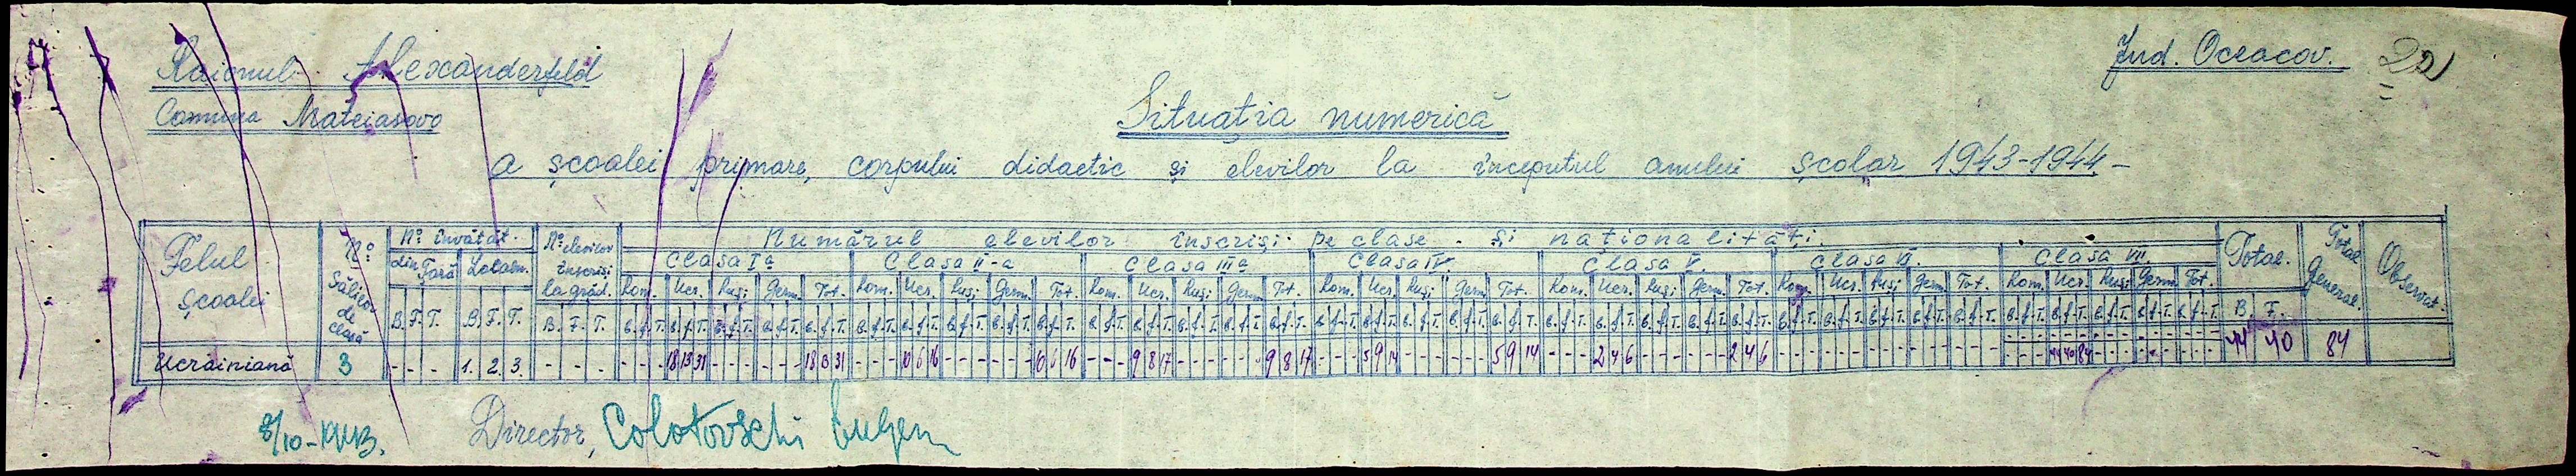 Raionul Alexanderfeld
Jud. Oceacov. 22
Comuna Mateiasovo
Situația numerică
a școalei primare, corpului didactic și elevilor la începutul anului școlar 1943-1944.-
Felul școalei
No Sălilor de clasă
No învățăt.
din Țară Localn.
B. F. T. B. F. T.
No elevilor înscriși la grăd.
B. F. T.
Numărul elevilor înscriși pe clase și naționalități.
Clasa I a Clasa II-a Clasa III a Clasa IV. Clasa V. Clasa VI. Clasa VII.
Rom. Ucr. Ruși Germ. Tot. Rom. Ucr. Ruși Germ. Tot. Rom. Ucr. Ruși Germ. Tot. Rom. Ucr. Ruși Germ. Tot. Rom. Ucr. Ruși Germ. Tot. Rom. Ucr. Ruși Germ. Tot. Rom. Ucr. Ruși Germ. Tot.
B. f. T. B. f. T. B. f. T. B. f. T. B. f. T. B. f. T. B. f. T. B. f. T. B. f. T. B. f. T. B. f. T. B. f. T. B. f. T. B. f. T. B. f. T. B. f. T. B. f. T. B. f. T. B. f. T. B. f. T. B. f. T. B. f. T. B. f. T. B. f. T. B. f. T. B. f. T. B. f. T. B. f. T. B. f. T. B. f. T. B. f. T. B. f. T. B. f. T. B. f. T. B. f. T.
Total.
B. F.
Total General.
Observat.
Ucrainiană 3 - - - 1. 2. 3. - - - - - - 18 13 31 - - - - - - 18 13 31 - - - 10 6 16 - - - - - - 10 6 16 - - - 9 8 17 - - - - - - 9 8 17 - - - 5 9 14 - - - - - - 5 9 14 - - - 2 4 6 - - - - - - 2 4 6 - - - - - - - - - - - - - - - - - - 44 40 84 - - - - - - - - - 44 40 84
8/10-1943. Director, Colotovschi Eugen